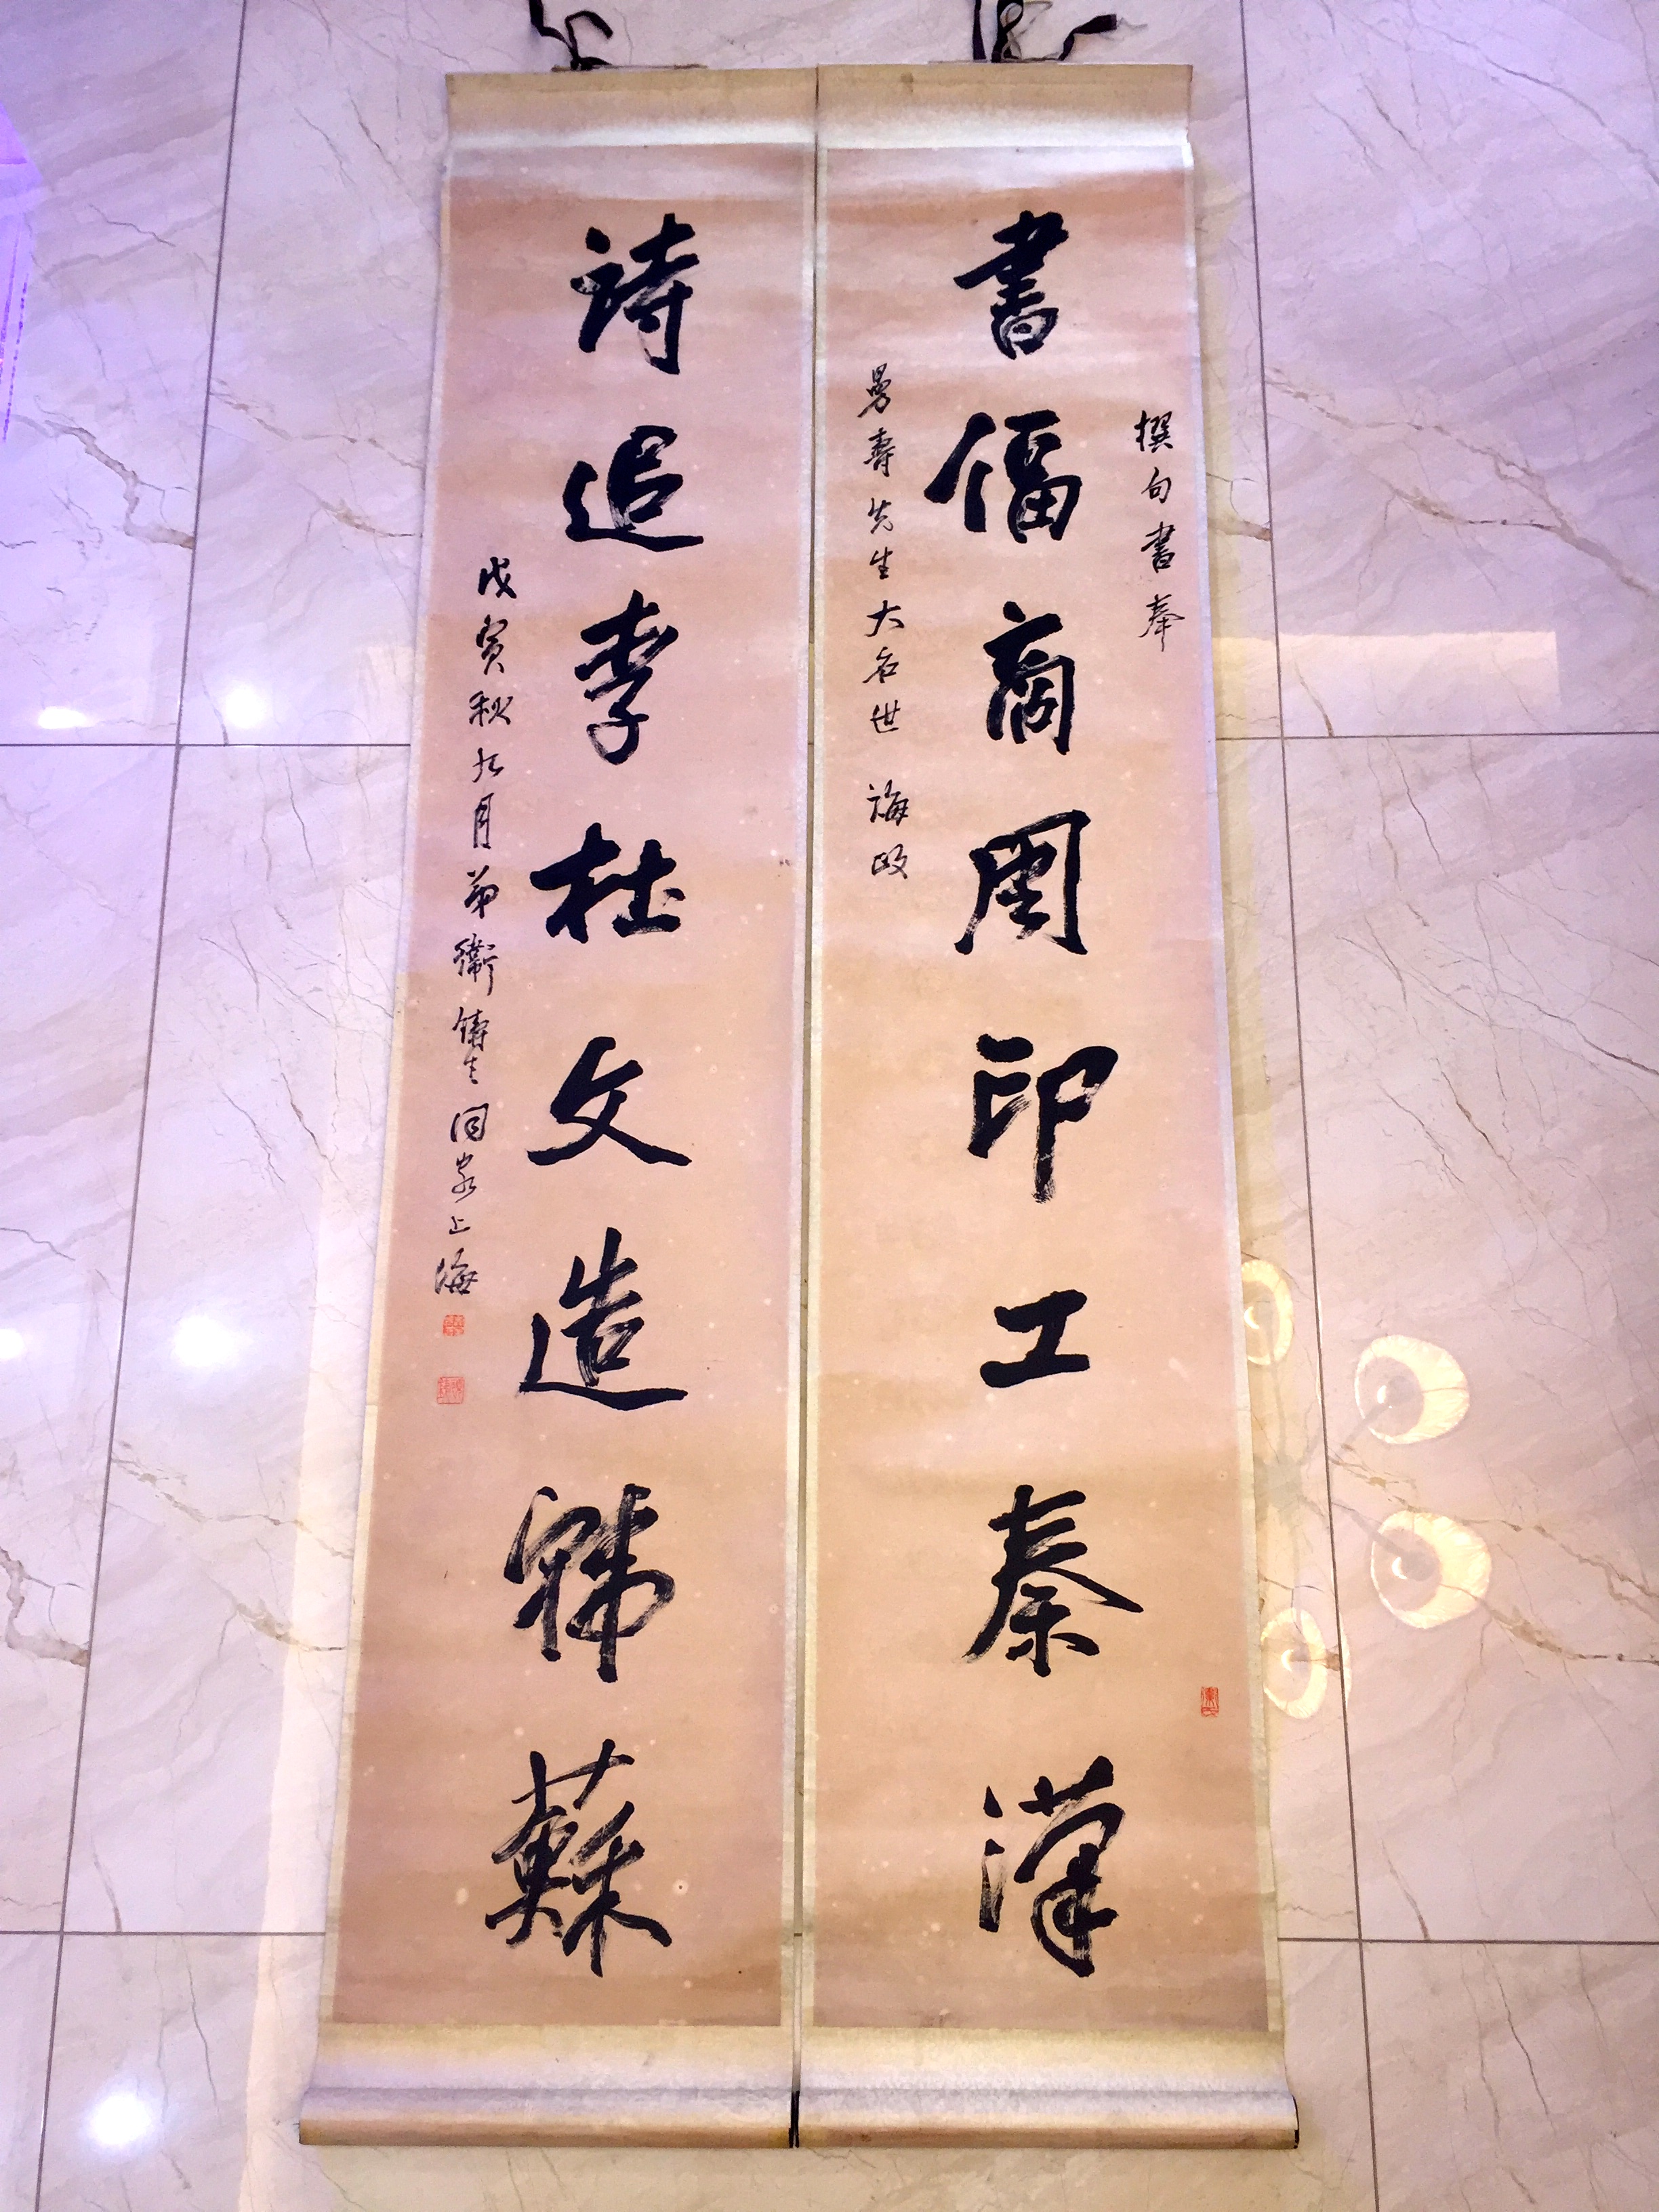 撰句書奉
書偪商周印工秦漢
曼壽先生大名世 誨政
詩追李杜文造韓蘇
戊寅秋九月弟衛鑄生同客上海